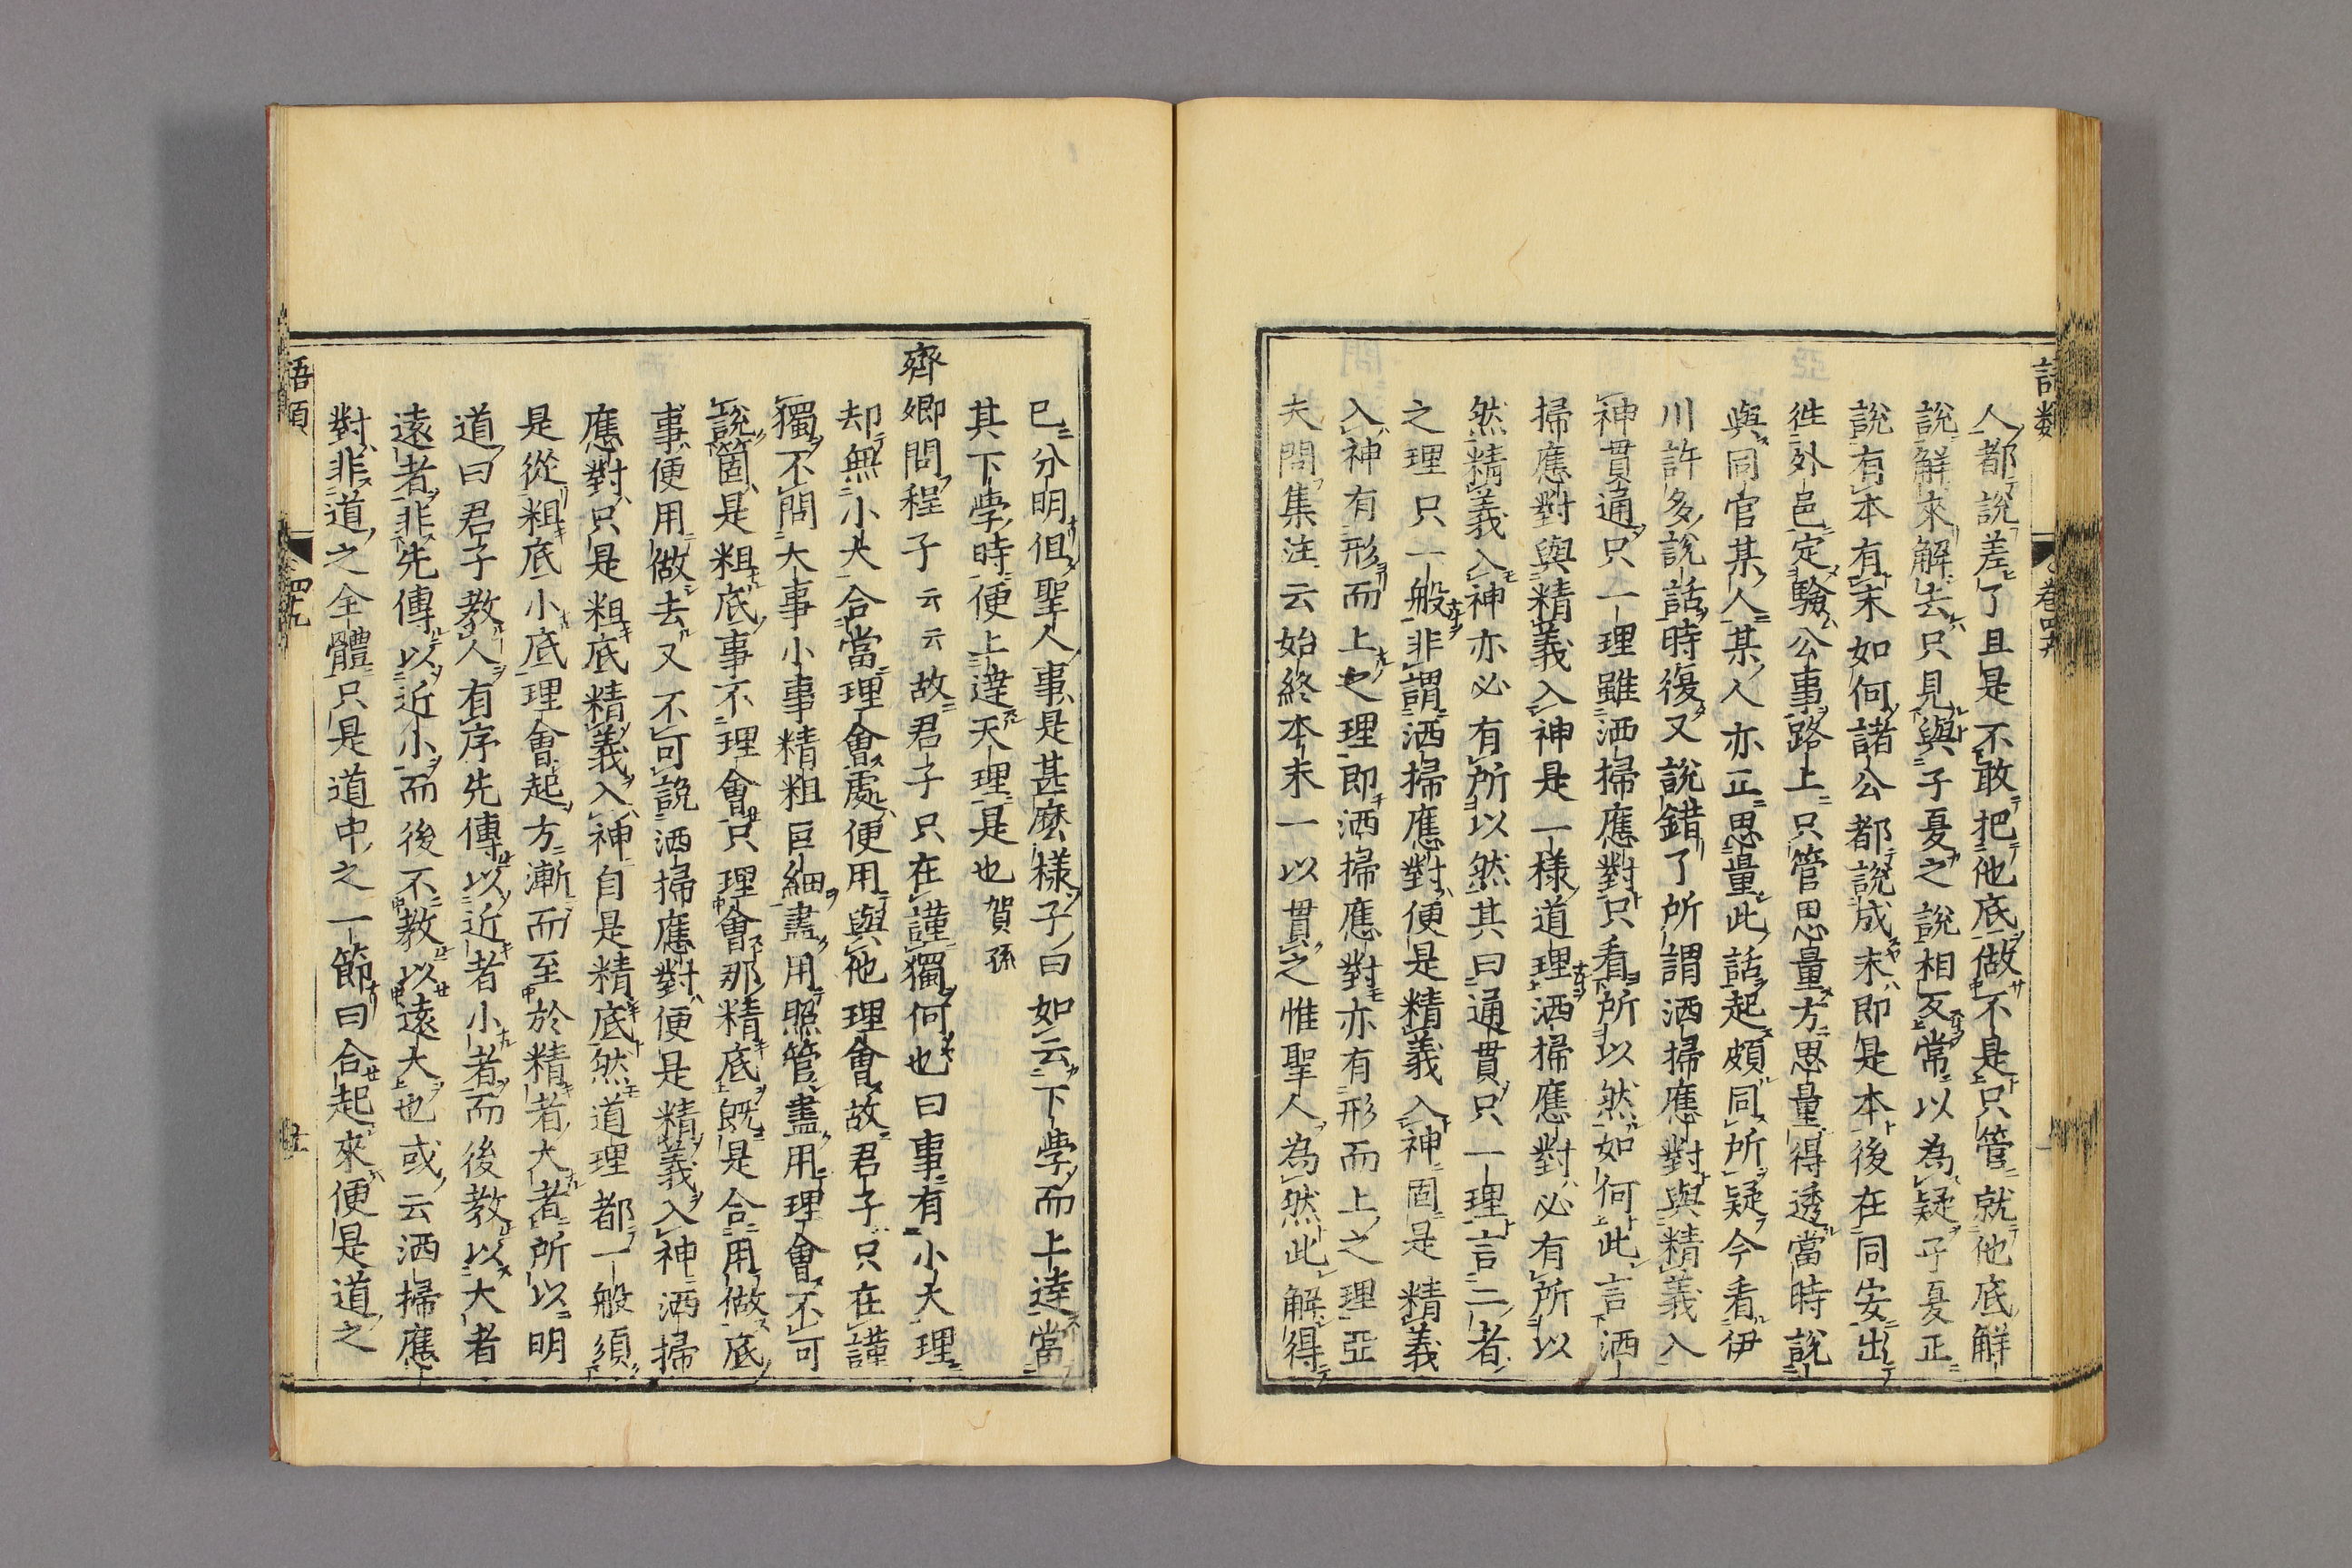 人都說差了且是不敢把他底做不是只管就他底解
說解來解去只見與子夏之說相反常以為疑子夏正
說有本有末如何諸公都說成末即是本後在同安出
徃外邑定驗公事路上只管思量方思量得透當時說
與同官某人某人亦正思量此話起頗同所疑今看伊
川許多說話時復又說錯了所謂洒掃應對與精義入
神貫通只一理雖洒掃應對只看所以然如何此言洒
掃應對與精義入神是一樣道理洒掃應對必有所以
然精義入神亦必有所以然其曰通貫只一理言二者
之理只一般非謂洒掃應對便是精義入神固是精義
入神有形而上之理即洒掃應對亦有形而上之理亞
夫問集注云始終本末一以貫之惟聖人為然此解得
已分明但聖人事是甚麽樣子曰如云下學而上達當
其下學時便上達天理是也賀孫
齊卿問程子云云故君子只在謹獨何也曰事有小大理
却無小大合當理會處便用與他理會故君子只在謹
獨不問大事小事精粗巨細盡用照管盡用理會不可
說箇是粗底事不理會只理會那精底既是合用做底
事便用做去又不可說洒掃應對便是精義入神洒掃
應對只是粗底精義入神自是精底然道理都一般須
是從粗底小底理會起方漸而至於精者大者所以明
道曰君子教人有序先傳以近者小者而後教以大者
遠者非先傳以近小而後不教以遠大也或云洒掃應
對非道之全體只是道中之一節曰合起來便是道之
語類
四九